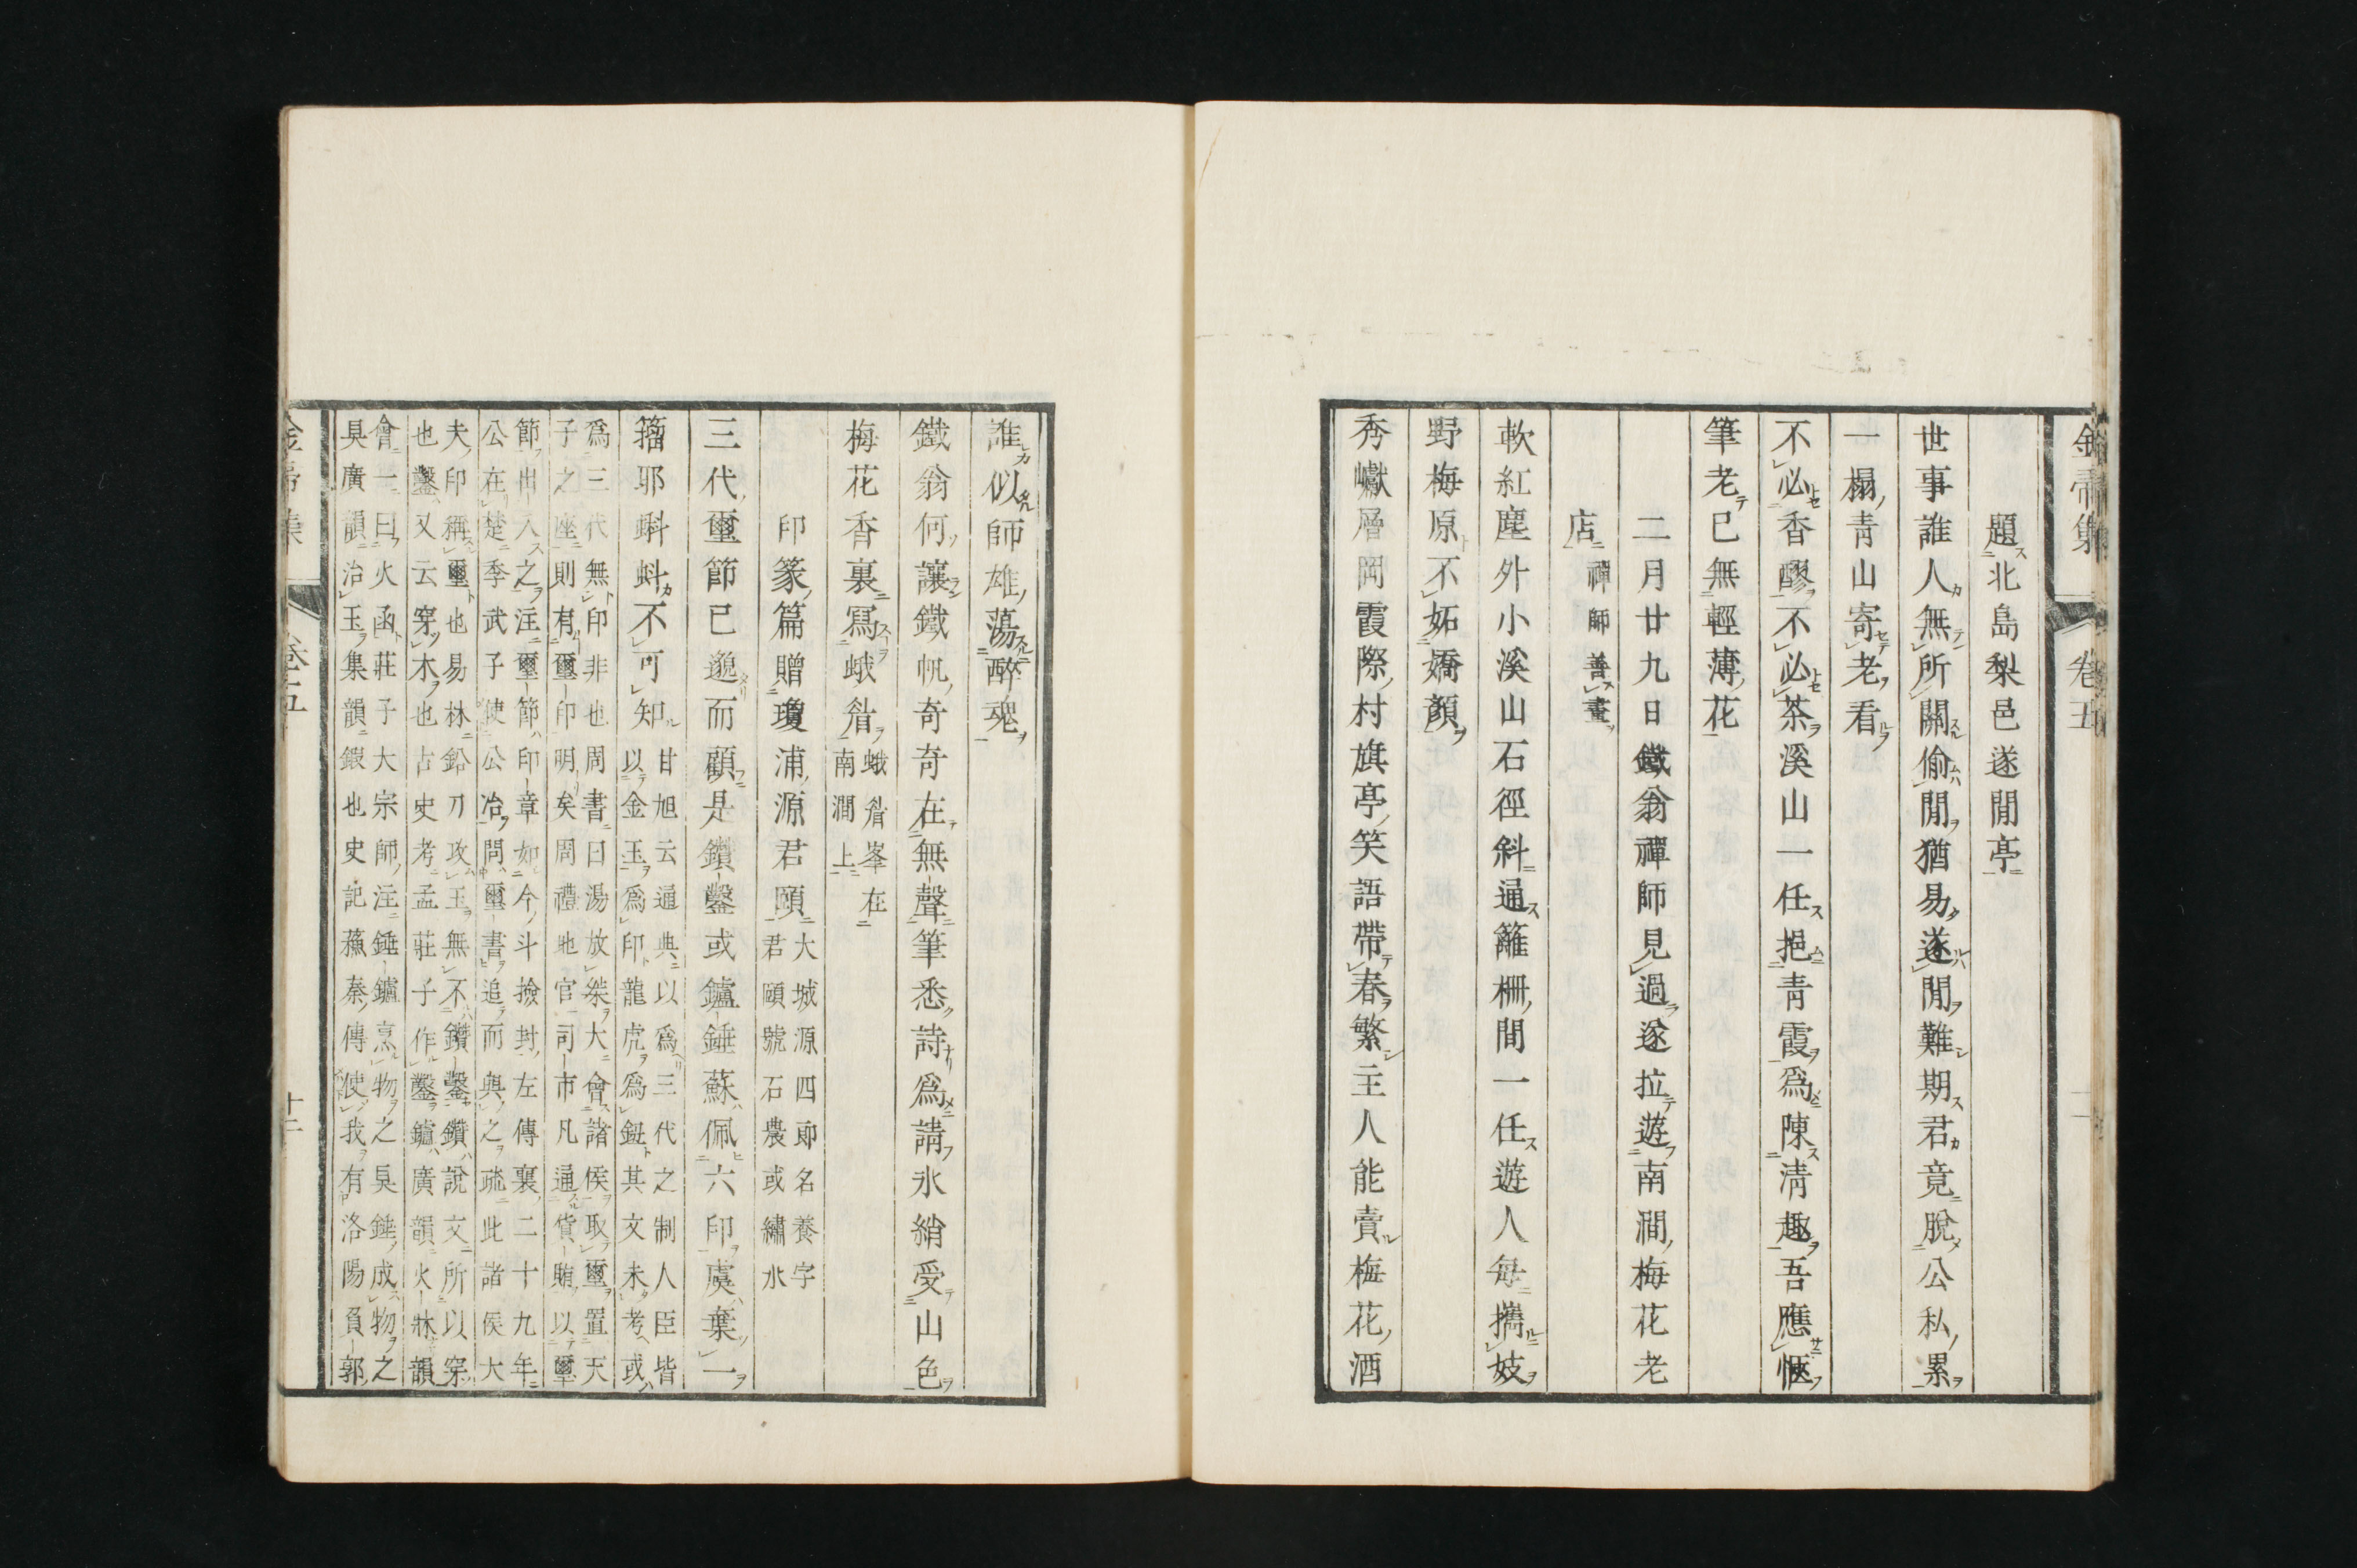 題北島梨邑遂閒亭
世事誰人無所關偷閒猶易遂閒難期君竟脫公私累
一榻青山寄老看
不必香醪不必茶溪山一任挹青霞爲陳清趣吾應愜
筆老已無輕薄花
二月廿九日鐵翁禪師見過遂拉遊南澗梅花老
店禪師善畫
軟紅塵外小溪山石徑斜通籬柵間一任遊人每攜妓
野梅原不妬嬌顏
秀巘層岡霞際村旗亭笑語帶春繁主人能賣梅花酒
卷五
誰似師雄蕩醉魂
鐵翁何讓鐵帆奇奇在無聲筆悉詩爲請氷綃受山色
梅花香裏寫蛾眉蛾眉峯在
南澗上
印篆篇贈瓊浦源君頤大城源四郎名養字
君頤號石農或繡水
三代璽節已邈而顧是鎖鑿或鑪錘蘇佩六印虞棄一
籀耶蝌蚪不可知甘旭云通典以爲三代之制人臣皆
以金玉爲印龍虎爲鈕其文未考或
爲三代無印非也周書曰湯放桀大會諸侯取璽置天
子之座則有璽印明矣周禮地官司市凡通貨賄以璽
節出入之注璽節印章如今斗撿封左傳襄二十九年
公在楚季武子使公冶問璽書追而與之疏此諸侯大
夫印稱璽也易林鉛刀攻玉無不鑽鑿鑽說文所以穿
也鑿又云穿木也古史考孟莊子作鑿鑪廣韻火牀韻
會一曰火函莊子大宗師注錘鑪烹物之具錘成物之
具廣韻治玉集韻鍜也史記蘇秦傳使我有洛陽負郭
卷五
十二